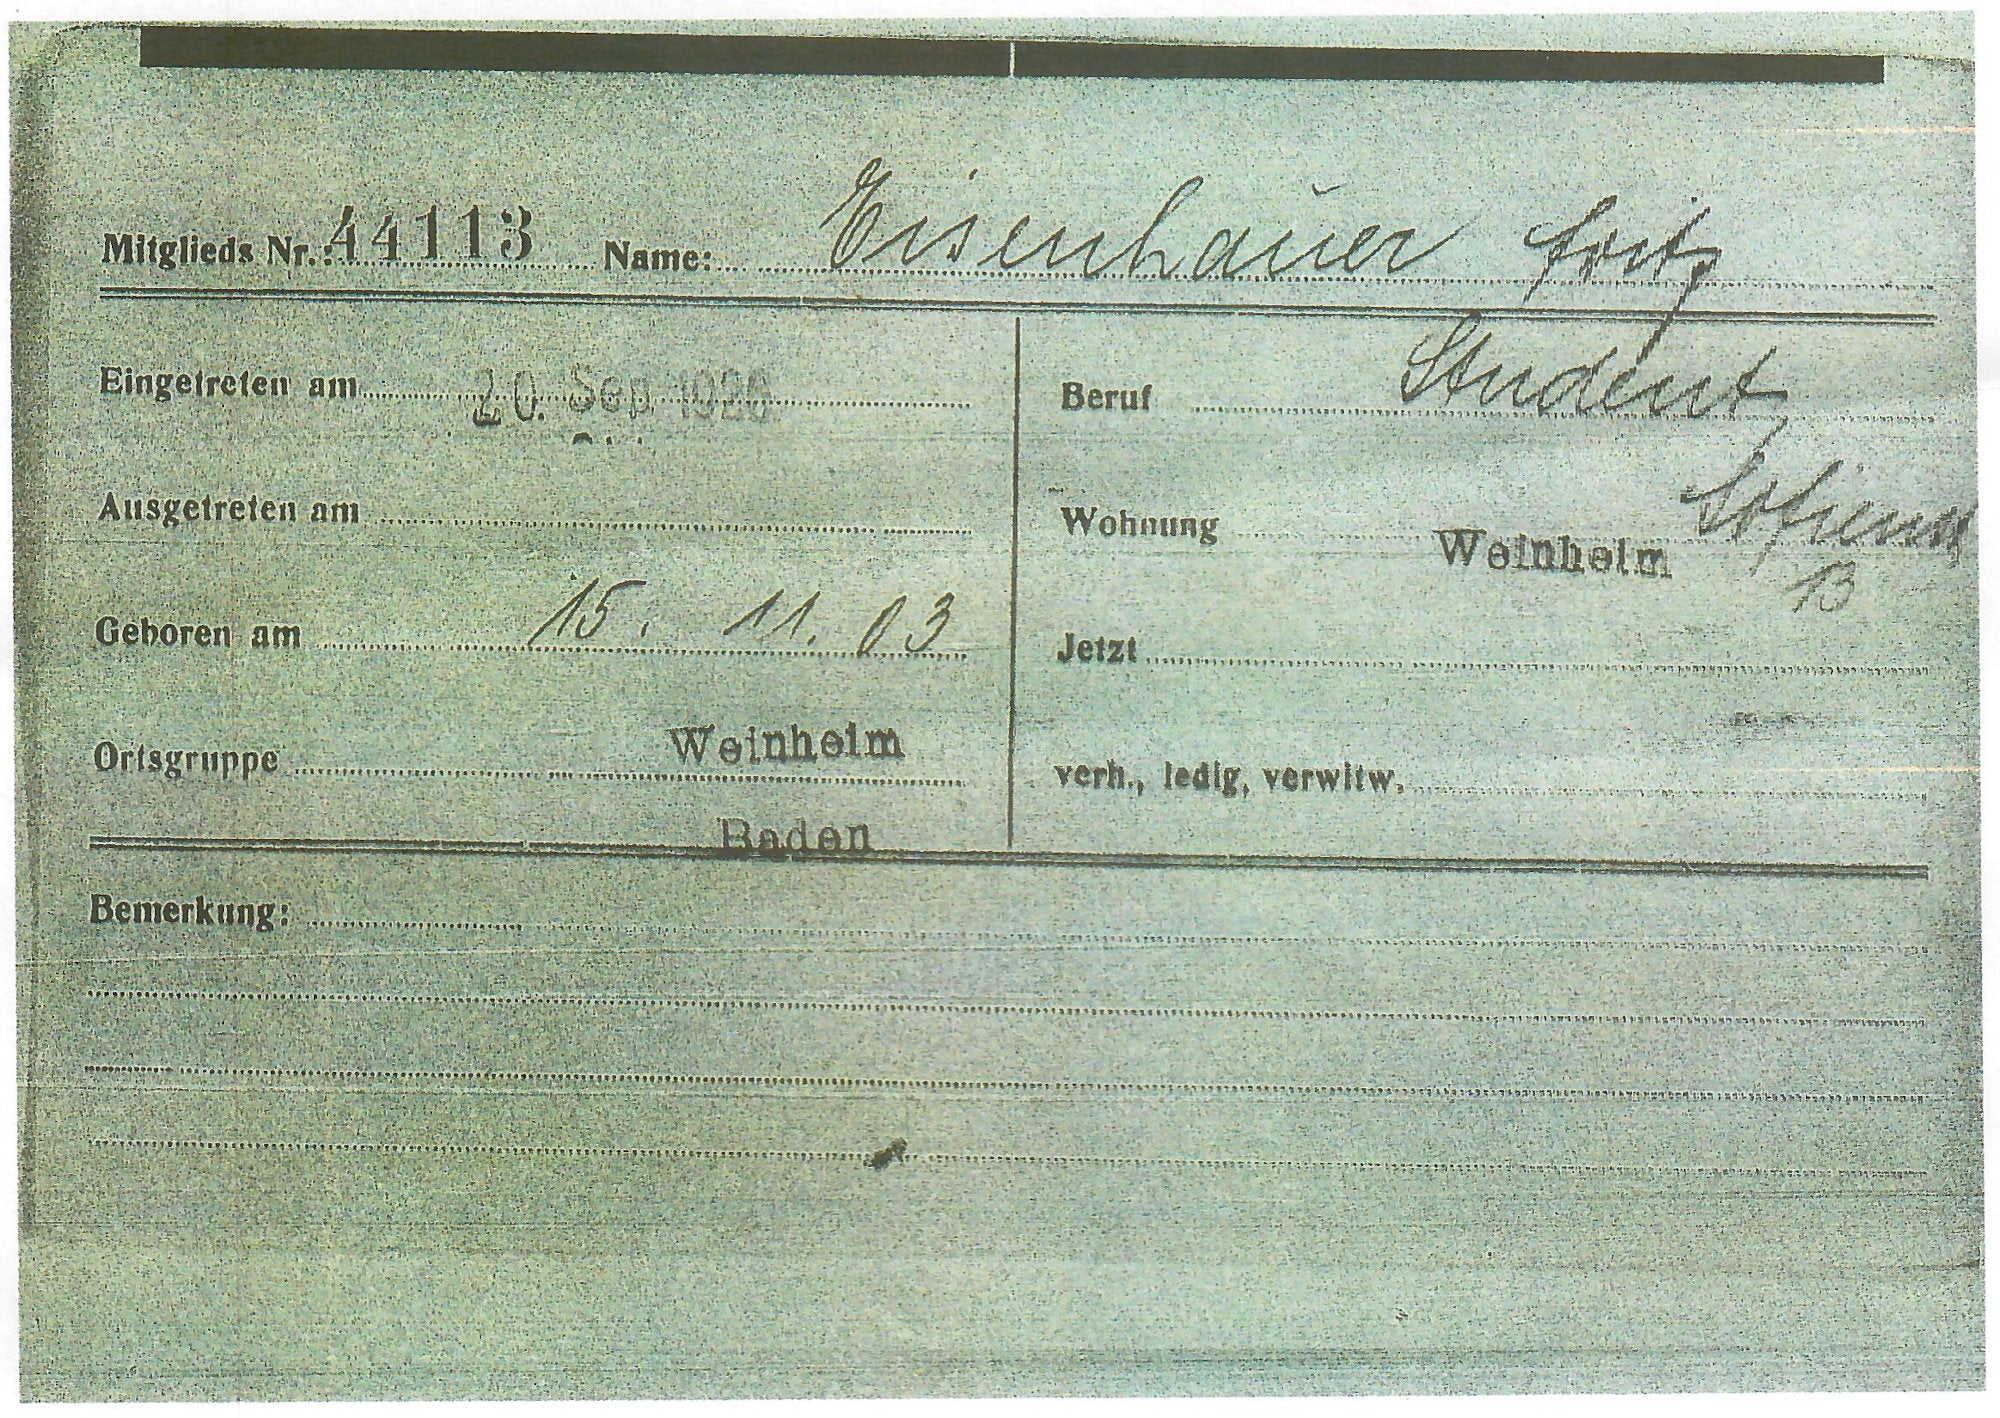 Mitglieds Nr.: 44113 Name: Eisenhauer Fritz
Eingetreten am 20. Sep. 1926
Beruf Student
Ausgetreten am
Wohnung Weinheim Sofienstr
13
Geboren am 15. 11. 03
Jetzt
Ortsgruppe Weinheim
verh., ledig, verwitw.
Baden
Bemerkung: